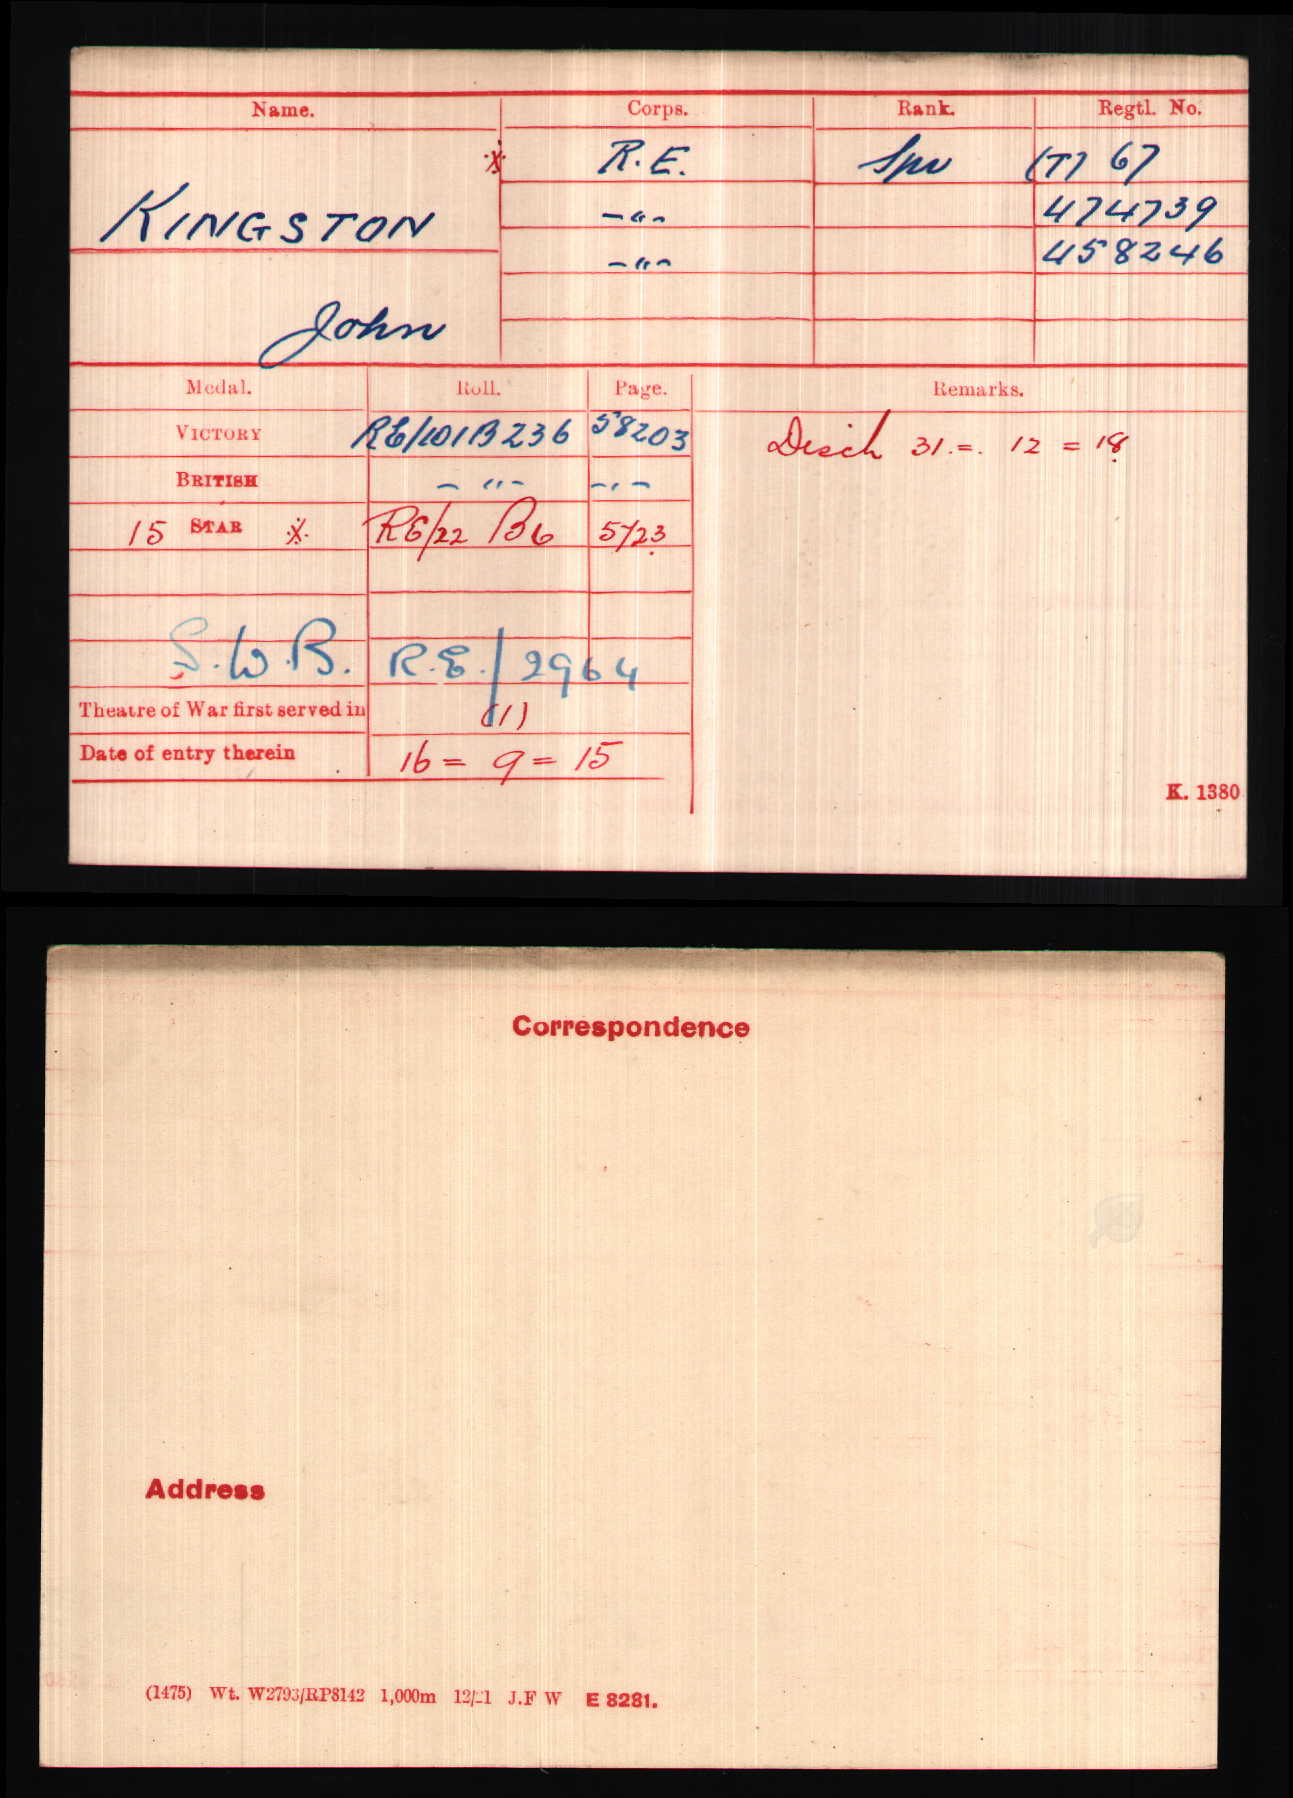 Name. Corps. Rank. Regtl. No.
X R.E. Spr (T) 67
KINGSTON -"- 474739
-"- 458246
John
Medal. Roll. Page. Remarks.
VICTORY RE/101B236 58203 Disch 31.=. 12 = 18
BRITISH - " - - " -
15 STAR X RE/22 B6 5723
S.W.B. R.E./2964
Theatre of War first served in (1)
Date of entry therein 16 = 9 = 15
K. 1380
Correspondence
Address
(1475) Wt. W2793/RP8142 1,000m J.F W E 8281.